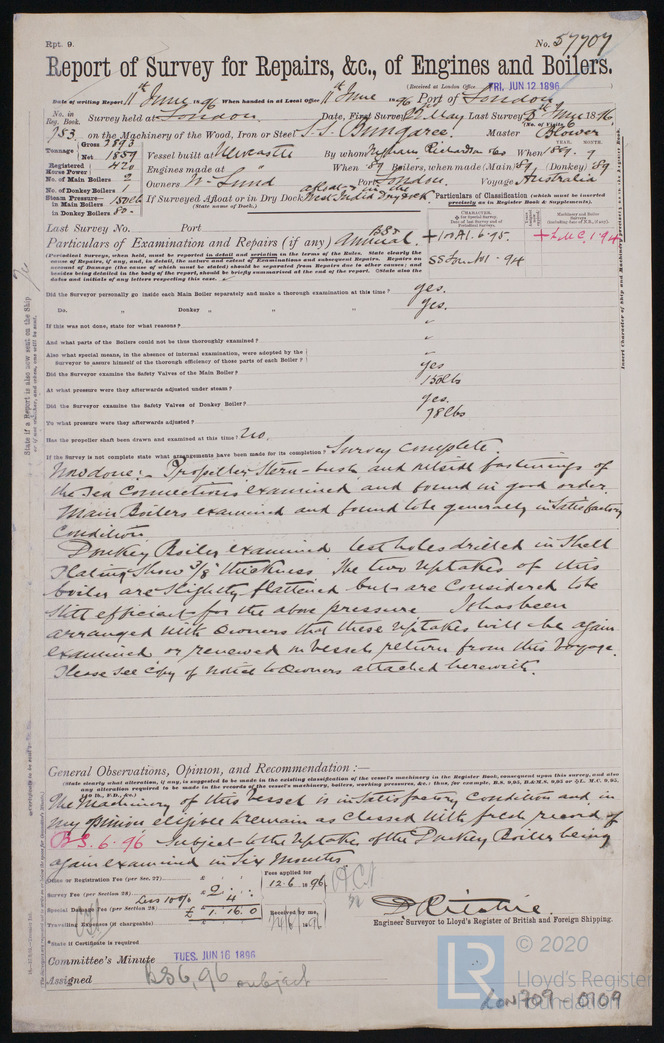 Rpt. 9.
No. 57707
Report of Survey for Repairs, &c., of Engines and Boilers.
(Received at London Office FRI, JUN 12 1896
Date of writing Report 11th June 1896 When handed in at Local Office 11th June 1896 Port of London
No. in Reg. Book. Survey held at London Date, First Survey May Last Survey June 1896
(No. of Visits 6
753 on the Machinery of the Wood, Iron or Steel S.S. Bungaree Master Blower
Tonnage Gross 2893
Net 1859
Vessel built at Newcastle By whom Richardson When 1889
Registered Horse Power 420
Engines made at When 89 Boilers, when made (Main) 89 (Donkey) 89
No. of Main Boilers 2
No. of Donkey Boilers 1
Owners W. Lund Port London Voyage Australia
Steam Pressure in Main Boilers 150 lbs
in Donkey Boilers 80
If Surveyed Afloat or in Dry Dock afloat & in the West India Dry Dock
(State name of Dock.)
Particulars of Classification (which must be inserted precisely as in Register Book & Supplements).
Last Survey No. Port
Particulars of Examination and Repairs (if any) Annual BS
+100A1. 6.95.
+LMC. 1.94
SS Lon No1 - 94
(Periodical Surveys, when held, must be reported in detail and seriatim in the terms of the Rules. State clearly the
cause of Repairs, if any, and in detail, the nature and extent of Examinations and subsequent Repairs. Repairs on
account of Damage (the cause of which must be stated) should be separated from Repairs due to other causes; and
besides being detailed in the body of the report, should be briefly summarised at the end of the report. State also the
dates and initials of any letters respecting this case.
Did the Surveyor personally go inside each Main Boiler separately and make a thorough examination at this time? yes.
Do. „ Donkey „ „ „ yes.
If this was not done, state for what reasons? „
And what parts of the Boilers could not be thoroughly examined? „
Also what special means, in the absence of internal examination, were adopted by the
Surveyor to assure himself of the thorough efficiency of those parts of each Boiler? „
Did the Surveyor examine the Safety Valves of the Main Boiler? yes
At what pressure were they afterwards adjusted under steam? 150 lbs
Did the Surveyor examine the Safety Valves of Donkey Boiler? yes.
To what pressure were they afterwards adjusted? 78 lbs
Has the propeller shaft been drawn and examined at this time? No.
If the Survey is not complete state what arrangements have been made for its completion? Survey complete
Now done:- Propeller Stern-bush and outside fastenings of
the Sea Connections examined and found in good order.
Main Boilers examined and found to be generally in Satisfactory
Condition.
Donkey Boiler examined test holes drilled in Shell
Plating Show 3/8" thickness. The two Uptakes of this
boiler are Slightly flattened but are Considered to be
Still efficient for the above pressure It has been
arranged with Owners that these Uptakes will be again
examined or renewed on vessels return from this Voyage.
Please see Copy of notice to Owners attached herewith.
General Observations, Opinion, and Recommendation :—
(State clearly what alteration, if any, is suggested to be made in the existing classification of the vessel's machinery in the Register Book, consequent upon this survey, and also
any alteration required to be made in the records of the vessel's machinery, boilers, working pressures, &c.; thus, for example, B.S. 9,95, B.&M.S. 9,95 or L.M.C. 9,95,
140 lb., F.D., &c.)
The Machinery of this Vessel is in Satisfactory Condition and in
my opinion eligible to remain as classed with fresh record of
B.S. 6.96 Subject to the Uptakes of the Donkey Boiler being
again examined in Six Months
Office or Registration Fee (per Sec. 27)...
Survey Fee (per Section 28)... £ 2
Less 10% 4
Special Damage Fee (per Section 28) £ 1.16.0
Travelling Expenses (if chargeable)
Fees applied for
12.6.1896
Received by me,
D Ritchie.
Engineer Surveyor to Lloyd's Register of British and Foreign Shipping.
*State if Certificate is required
Committee's Minute TUES. JUN 16 1896
Assigned BS 6,96 subject
© 2020
Lloyd's Register
Foundation
LR
LON709-0109
State if a Report is also now sent on the Ship